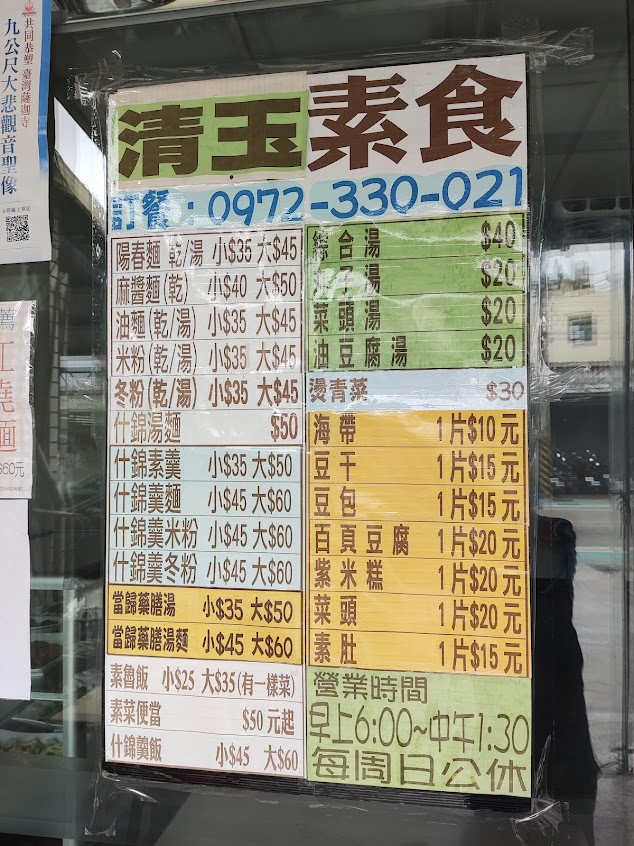 共同恭塑 臺灣薩迦寺
九公尺大悲觀音聖像
清玉素食
訂餐：0972-330-021
陽春麵 乾/湯 小$35 大$45
麻醬麵(乾) 小$40 大$50
油麵(乾/湯) 小$35 大$45
米粉(乾/湯) 小$35 大$45
冬粉(乾/湯) 小$35 大$45
什錦湯麵 $50
什錦素羹 小$35 大$50
什錦羹麵 小$45 大$60
什錦羹米粉 小$45 大$60
什錦羹冬粉 小$45 大$60
當歸藥膳湯 小$35 大$50
當歸藥膳湯麵 小$45 大$60
素魯飯 小$25 大$35(有一樣菜)
素菜便當 $50元起
什錦羹飯 小$45 大$60
綜合湯 $40
子湯 $20
菜頭湯 $20
油豆腐湯 $20
燙青菜 $30
海帶 1片$10元
豆干 1片$15元
豆包 1片$15元
百頁豆腐 1片$20元
紫米糕 1片$20元
菜頭 1片$20元
素肚 1片$15元
營業時間
早上6:00~中午1:30
每周日公休